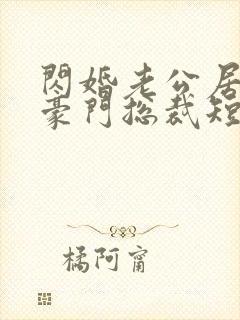 閃婚老公居
豪門總裁短
橘阿甯